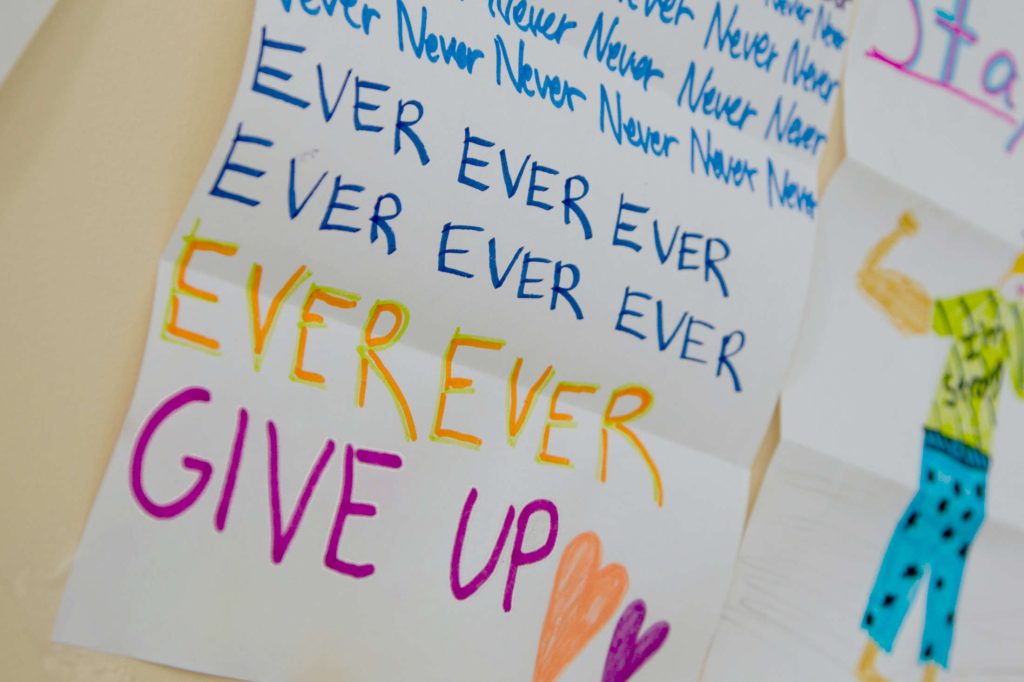 Never Never
Never Never Never
Never Never Never Never
Never Never Never Never Never Never
EVER EVER EVER
EVER EVER EVER
EVER EVER
GIVE UP
Sta
I'm
strong